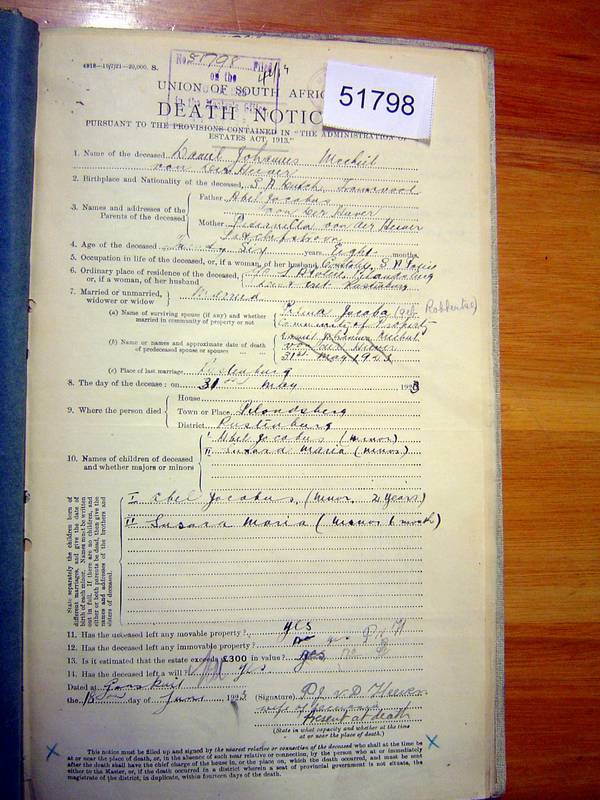 No. 51798 Filed
on the
51798
UNION OF SOUTH AFRI
DEATH NOTIC
PURSUANT TO THE PROVISIONS CONTAINED IN "THE ADMINISTRATION OF
ESTATES ACT, 1913."
1. Name of the deceased Johannes
van der Heever
2. Birthplace and Nationality of the deceased, S A Dutch, Transvaal
3. Names and addresses of the Parents of the deceased
Father Abel Jacobus
van der Heever
Mother Petronella van der Heever
4. Age of the deceased years Eight months.
5. Occupation in life of the deceased, or, if a woman, of her husband Constable, S A Police
6. Ordinary place of residence of the deceased, or, if a woman, of her husband S A Police, Pilandsberg
District Rustenburg
7. Married or unmarried, widower or widow Married
(a) Name of surviving spouse (if any) and whether married in community of property or not
Jacoba
Community of Property
(b) Name or names and approximate date of death of predeceased spouse or spouses
Johannes
van der Heever
31st May 1923
(c) Place of last marriage Rustenburg
8. The day of the decease: on 31 May 1923
9. Where the person died
House
Town or Place Pilandsberg
District Rustenburg
10. Names of children of deceased and whether majors or minors
I Abel Jacobus (minor)
II Susara Maria (minor)
State separately the children born of different marriages, and give the date of birth of each minor. Names must be written out in full. If there are no children, and either or both parents be dead, then give the names and addresses of the brothers and sisters of deceased.
I Abel Jacobus, (minor, 2 years)
II Susara Maria (minor 1 month)
11. Has the deceased left any movable property? yes
12. Has the deceased left any immovable property? no
13. Is it estimated that the estate exceeds £300 in value? yes no
14. Has the deceased left a will? yes
Dated at
the 18 day of June 1923
(Signature) P J v D Heever
wife of deceased
Present at death
(State in what capacity and whether at the time
at or near the place of death.)
This notice must be filled up and signed by the nearest relative or connection of the deceased who shall at the time be
at or near the place of death, or, in the absence of such near relative or connection, by the person who at or immediately
after the death shall have the chief charge of the house in, or the place on, which the death occurred, and must be sent
either to the Master, or, if the death occurred in a district wherein a seat of provincial government is not situate, the
magistrate of the district, in duplicate, within fourteen days of the death.